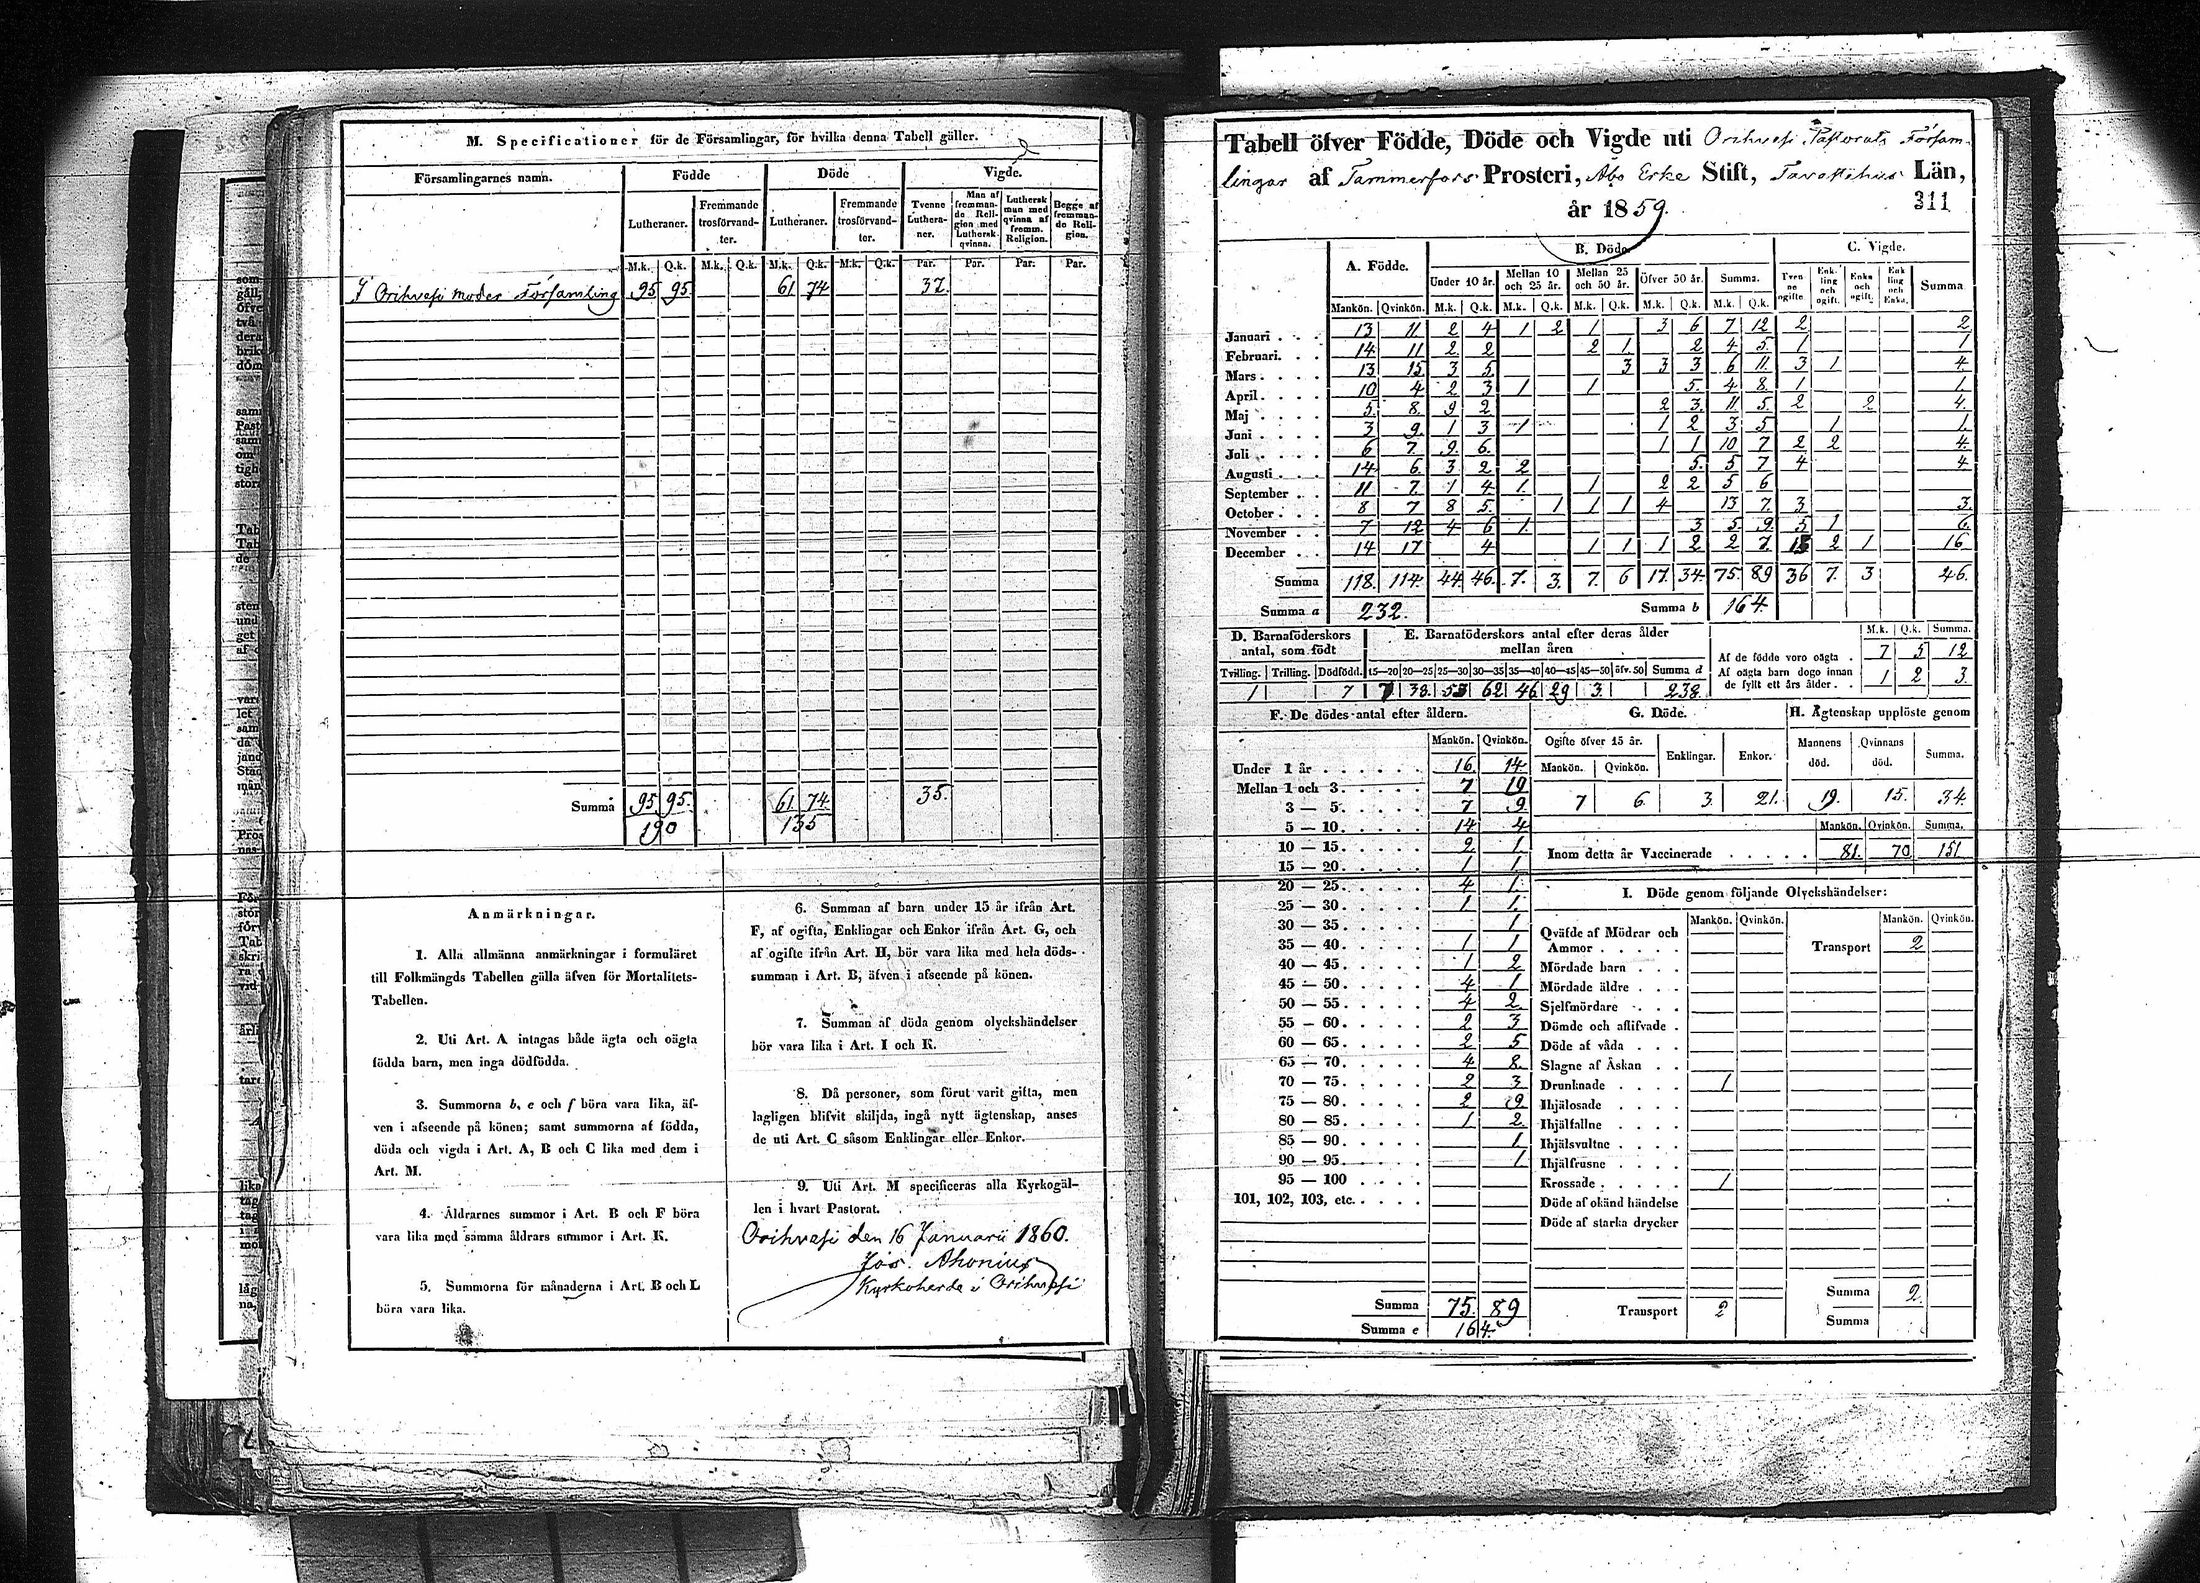 M. Specificationer för de Församlingar, för hvilka denna Tabell gäller.
Församlingarnes namn. Födde Döde Vigde.
Lutheraner. Fremmande trosförvandter. Lutheraner. Fremmande trosförvandter. Tvenne Lutheraner. Man af fremmande Religion med Luthersk qvinna. Luthersk man med qvinna af fremm. Religion. Begge af fremmande Religion.
M.k. Q.k. M.k. Q.k. M.k. Q.k. M.k. Q.k. Par. Par. Par. Par.
I Orihvesi moder Församling 95 95. 61 74 37.
Summa 95 95. 61 74 35.
190 135
Anmärkningar.
1. Alla allmänna anmärkningar i formuläret
till Folkmängds Tabellen gälla äfven för Mortalitets-
Tabellen.
2. Uti Art. A intagas både ägta och oägta
födda barn, men inga dödfödda.
3. Summorna b, e och f böra vara lika, äf-
ven i afseende på könen; samt summorna af födda,
döda och vigda i Art. A, B och C lika med dem i
Art. M.
4. Åldrarnes summor i Art. B och F böra
vara lika med samma åldrars summor i Art. K.
5. Summorna för månaderna i Art. B och L
böra vara lika.
6. Summan af barn under 15 år ifrån Art.
F, af ogifta, Enklingar och Enkor ifrån Art. G, och
af ogifte ifrån Art. H, bör vara lika med hela döds-
summan i Art. B, äfven i afseende på könen.
7. Summan af döda genom olyckshändelser
bör vara lika i Art. I och K.
8. Då personer, som förut varit gifta, men
lagligen blifvit skiljda, ingå nytt ägtenskap, anses
de uti Art. C såsom Enklingar eller Enkor.
9. Uti Art. M specificeras alla Kyrkogäl-
len i hvart Pastorat.
Orihvesi den 16 Januarii 1860.
Jos. Ahonius
Kyrkoherde i Orihvesi
Tabell öfver Födde, Döde och Vigde uti Orihvesi Pastorats Försam-
lingar af Tammerfors Prosteri, Åbo Erke Stift, Tavastehus Län,
år 1859.
311
A. Födde. B. Döde. C. Vigde.
Under 10 år. Mellan 10 och 25 år. Mellan 25 och 50 år. Öfver 50 år. Summa. Tvenne ogifte Enkling och ogift. Enka och ogift. Enkling och Enka. Summa
Mankön. Qvinkön. M.k. Q.k. M.k. Q.k. M.k. Q.k. M.k. Q.k. M.k. Q.k.
Januari 13 11 2 4 1 2 1 3 6 7 12 2 2
Februari. 14 11 2 2 2 1 2 4 5. 1 1
Mars 13 15 3 5 3 3 3 6 11. 3 1 4.
April 10 4 2 3 1 1 5. 4 8. 1 1.
Maj 5. 8. 9 2 2 3. 11 5. 2 2 4.
Juni 3 9. 1 3 1 1 2 3 5 1 1.
Juli 6 7. 9 6. 1 1 10 7 2 2 4.
Augusti 14 6. 3 2 2 5. 5 7 4 4
September 11 7. 1 4 1. 1 2 2 5 6
October 8 7 8 5. 1 1 1 4 13 7. 3 3.
November 7 12 4 6 1 3 5. 9. 5 1 6.
December 14 17 4 1 1 1 2 2 7. 2 1 16
Summa 118. 114. 44. 46. 7. 3. 7. 6 17. 34. 75. 89 36 7. 3 46.
Summa a 232. Summa b 164.
D. Barnaföderskors antal, som födt
E. Barnaföderskors antal efter deras ålder mellan åren
Tvilling. Trilling. Dödfödd. 15—20 20—25 25—30 30—35 35—40 40—45 45—50 öfv. 50 Summa d
1 7 7 38. 53 62 46 29 3. 238.
M.k. Q.k. Summa.
Af de födde voro oägta 7 5 12
Af oägta barn dogo innan de fyllt ett års ålder 1 2 3.
F. De dödes antal efter åldern.
Mankön. Qvinkön.
Under 1 år 16. 14.
Mellan 1 och 3 7 19
3 — 5 7 9.
5 — 10 14 4
10 — 15 2 1.
15 — 20 1 1
20 — 25 4 1.
25 — 30 1 1.
30 — 35 1
35 — 40 1 1
40 — 45 1 2
45 — 50 4 1
50 — 55 4 2
55 — 60 2 3
60 — 65 2 5
65 — 70 4 8.
70 — 75 2 3
75 — 80 2 9.
80 — 85 1 2
85 — 90 1.
90 — 95 1.
95 — 100
101, 102, 103, etc.
Summa 75. 89
Summa e 164.
G. Döde.
Ogifte öfver 15 år. Enklingar. Enkor.
Mankön. Qvinkön.
7 6. 3. 21.
H. Ägtenskap upplöste genom
Mannens död. Qvinnans död. Summa.
19. 15. 34.
Mankön. Qvinkön. Summa.
Inom detta år Vaccinerade 81. 70 151
I. Döde genom följande Olyckshändelser:
Mankön. Qvinkön. Mankön. Qvinkön.
Qväfde af Mödrar och Ammor
Transport 2
Mördade barn
Mördade äldre
Sjelfmördare
Dömde och aflifvade
Döde af våda
Slagne af Åskan
Drunknade 1
Ihjälosade
Ihjälfallne
Ihjälsvultne
Ihjälfrusne
Krossade 1
Döde af okänd händelse
Döde af starka drycker
Transport 2
Summa 2.
Summa